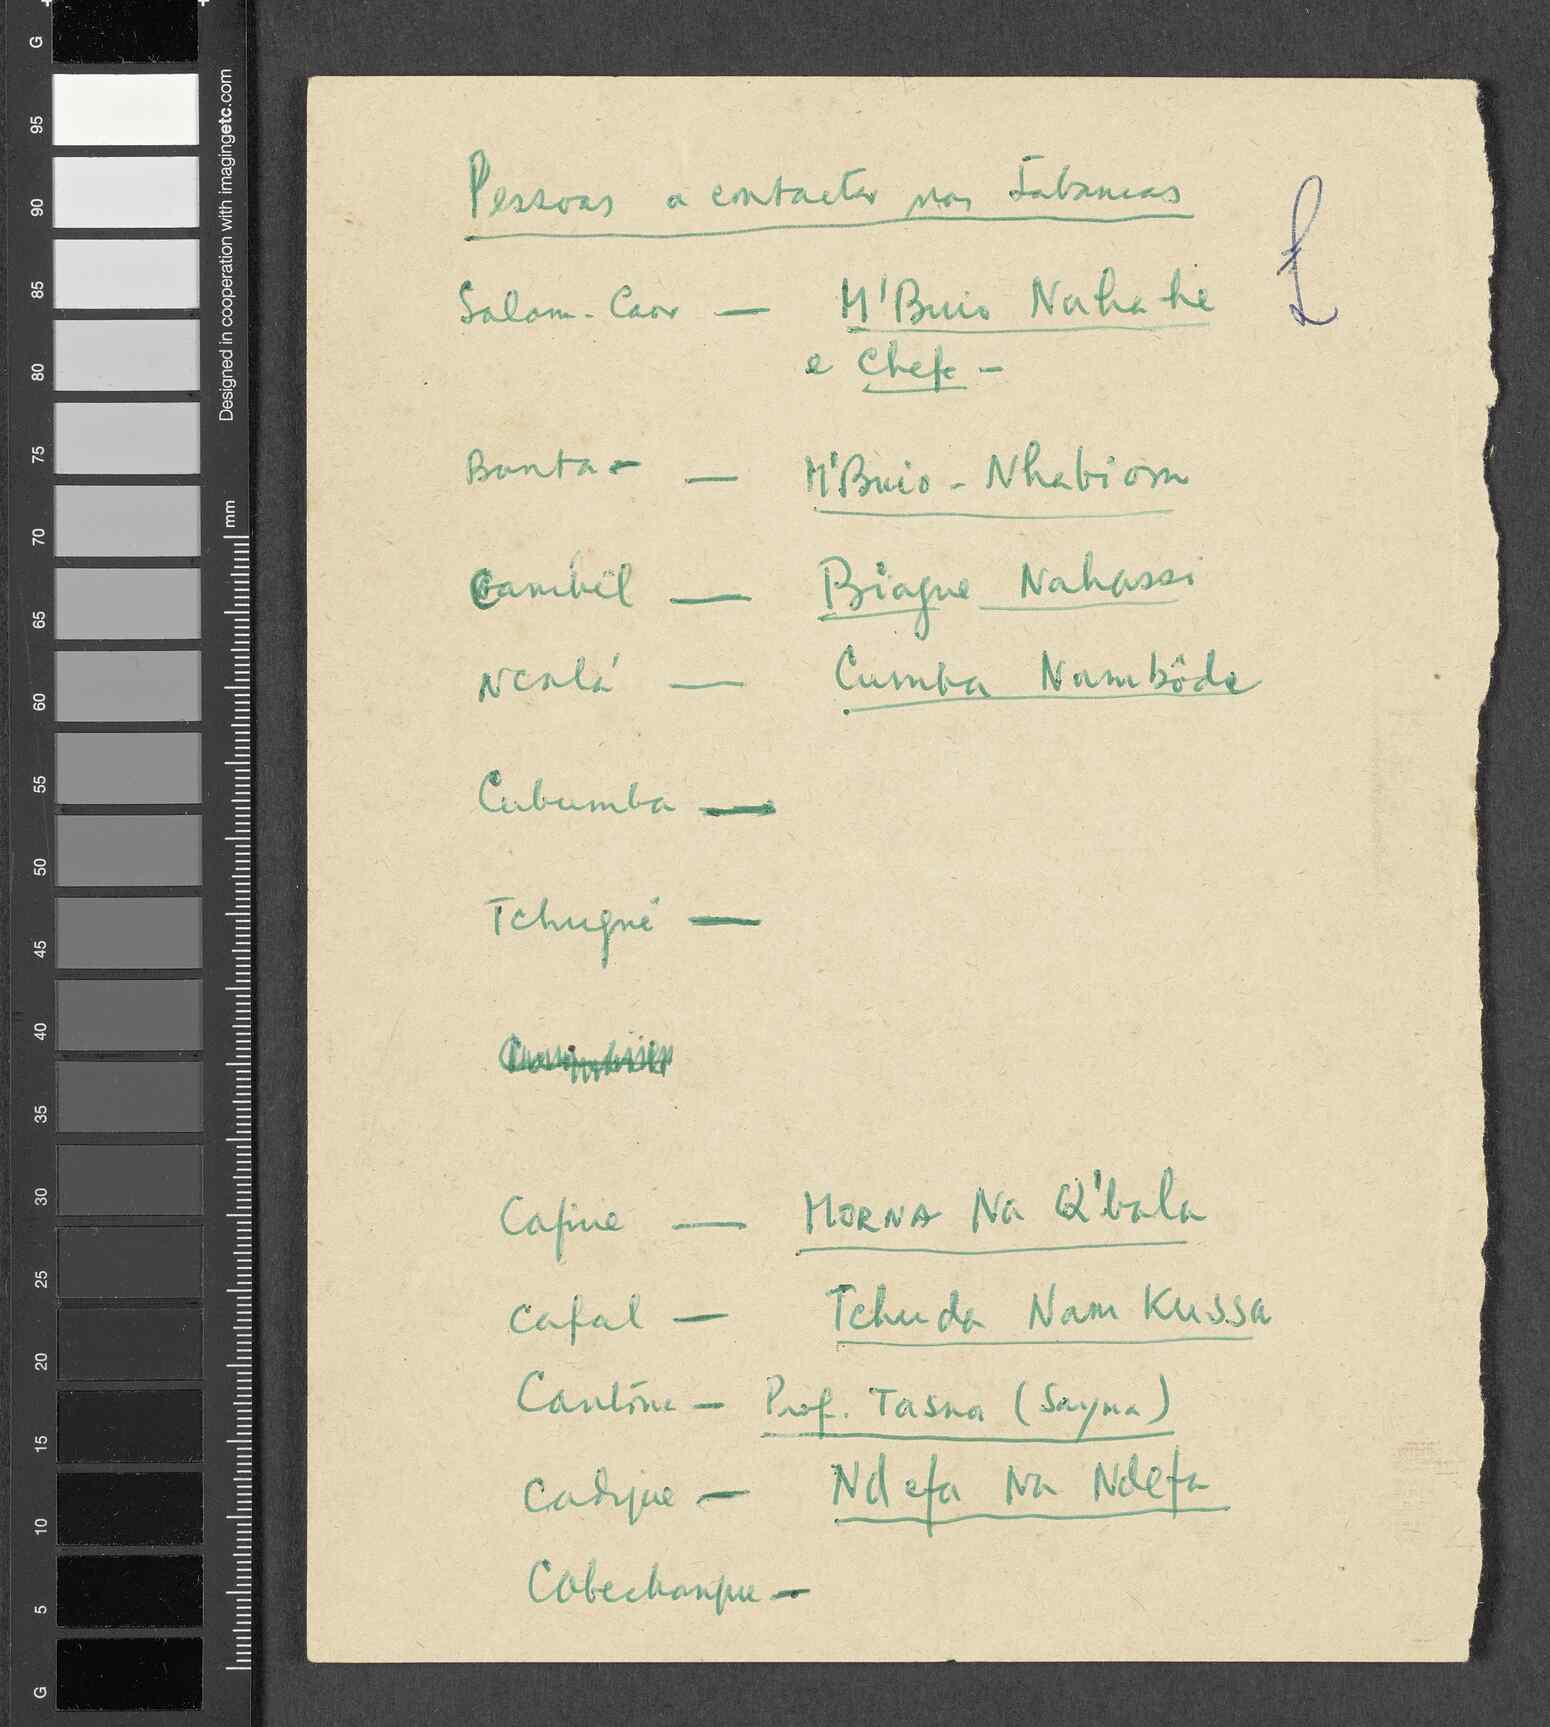 Pessoas a contactar nas Tabancas
Salam-Caor — M'Buio Nahahe
e Chefe —
Banta — M'Buio - Nhabiom
Cambil — Biague Nahassi
Ncalá — Cumba Nambôde
Cubumba —
Tchugué —
Cafine — MORNA Na Q'bala
Cafal — Tchuda Nam Kussa
Cantône — Prof. Tasna (Sayna)
Cadique — Ndefa Na Ndefa
Cobechanque —
Designed in cooperation with imagingetc.com
mm
G
95
90
85
80
75
70
65
60
55
50
45
40
35
30
25
20
15
10
5
G